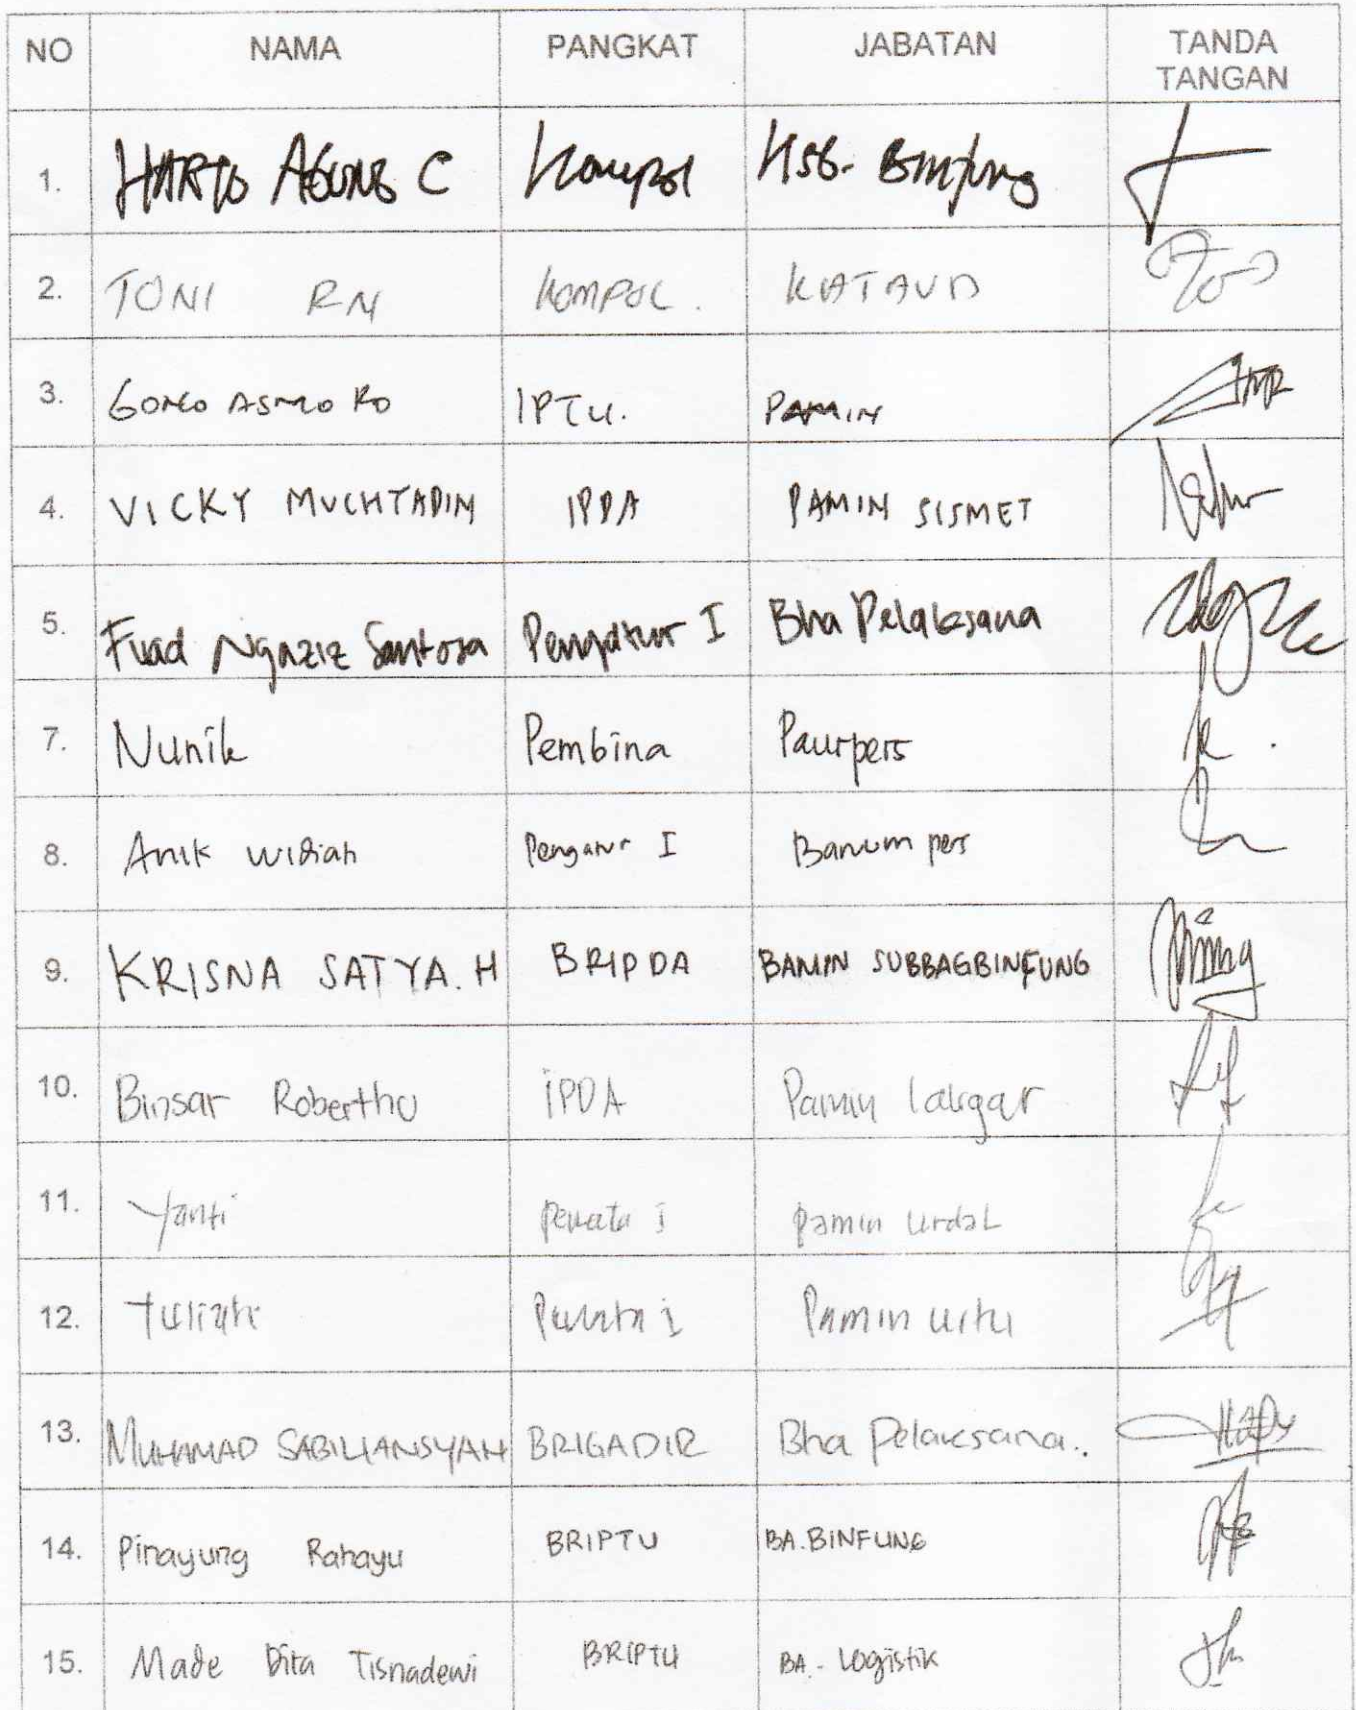 NO NAMA PANGKAT JABATAN TANDA TANGAN
1. HARTO AGUNG C Kompol KSB. Binfung
2. TONI RN KOMPOL. KATAUD
3. GONGO ASMORO IPTU. PAMIN
4. VICKY MUCHTADIM IPDA PAMIN SISMET
5. Fuad Ngaziz Santosa Pengatur I Bha Pelaksana
7. Nunik Pembina Paurpers
8. Anik widiah Pengatur I Banum pers
9. KRISNA SATYA. H BRIPDA BAMIN SUBBAGBINFUNG
10. Binsar Roberthu IPDA Pamin lakgar
11. Yanti Penata I Pamin Urdal
12. Penata I Pamin urtu
13. MUHAMAD SABILIANSYAH BRIGADIR Bha Pelaksana..
14. Pinayung Rahayu BRIPTU BA.BINFUNG
15. Made Dita Tisnadewi BRIPTU BA.- Logistik